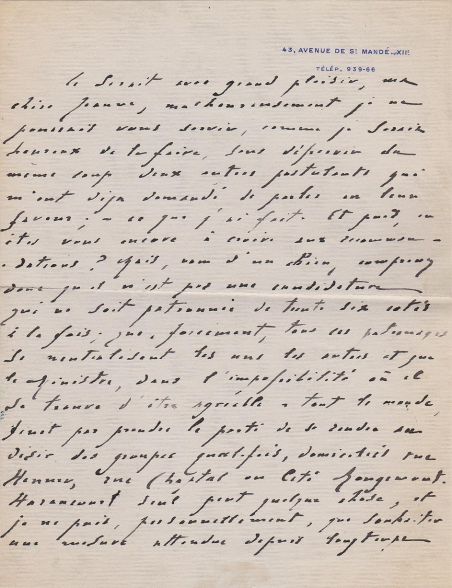 43, AVENUE DE St MANDÉ._XIIe
TÉLÉP. 939-66
Ce serait avec grand plaisir, ma
chère Jeanne, malheureusement je ne
pourrais vous servir, comme je serais
heureux de le faire, sans desservir du
même coup deux autres postulants qui
m'ont déjà demandé de parler en leur
faveur ; — ce que j'ai fait. Et puis, en
êtes vous encore à croire aux recomman-
dations ? Mais, nom d'un chien, comprenez
donc qu'il n'est pas une candidature
qui ne soit patronnée de trente six cotés
à la fois ; que, forcément, tous ces patronages
se neutralisent les uns les autres et que
le Ministre, dans l'impossibilité où il
se trouve d'être agréable à tout le monde,
finit par prendre le parti de se rendre au
désir des groupes qualifiés, domiciliés rue
Henner, rue Chaptal ou Cité Rougemont.
Haraucourt seul peut quelque chose, et
je ne puis, personnellement, que souhaiter
une mesure attendue depuis longtemps